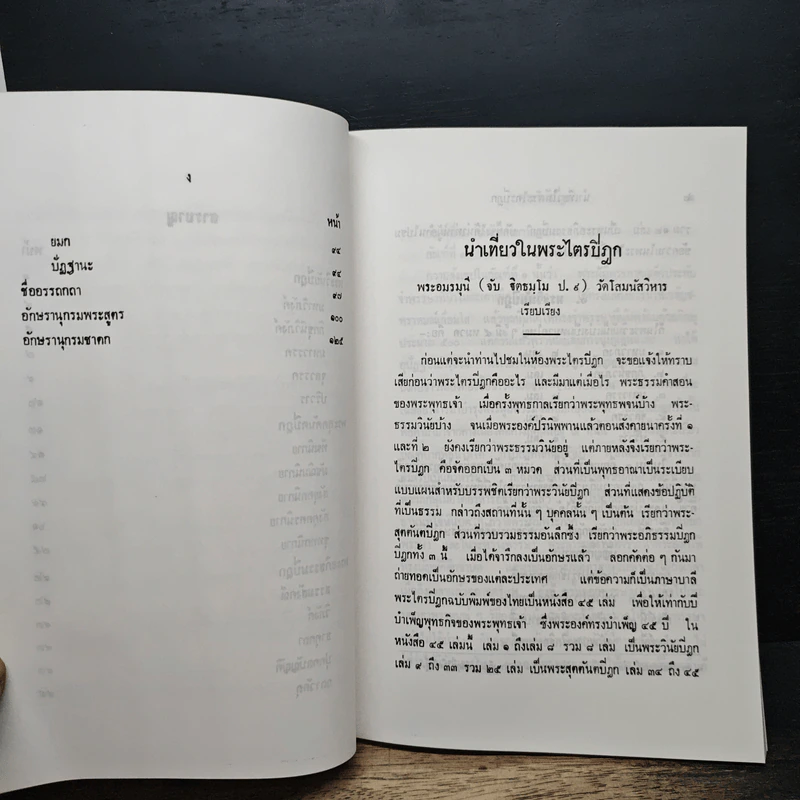 ง
หน้า
ยมก ๙๔
ปัฏฐานะ ๙๔
ชื่ออรรถกถา ๙๗
อักษรานุกรมพระสูตร ๑๐๐
อักษรานุกรมชาดก ๑๒๕
นำเที่ยวในพระไตรปิฎก
พระอมรมุนี (จับ ฐิตธมฺโม ป.๙) วัดโสมนัสวิหาร
เรียบเรียง
ก่อนแต่จะนำท่านไปชมในห้องพระไตรปิฎก จะขอแจ้งให้ทราบ
เสียก่อนว่าพระไตรปิฎกคืออะไร และมีมาแต่เมื่อไร พระธรรมคำสอน
ของพระพุทธเจ้า เมื่อครั้งพุทธกาลเรียกว่าพระพุทธพจน์บ้าง พระ-
ธรรมวินัยบ้าง จนเมื่อพระองค์ปรินิพพานแล้วตอนสังคายนาครั้งที่ ๑
และที่ ๒ ยังคงเรียกว่าพระธรรมวินัยอยู่ แต่ภายหลังจึงเรียกว่าพระ-
ไตรปิฎก คือจัดออกเป็น ๓ หมวด ส่วนที่เป็นพุทธอาณาเป็นระเบียบ
แบบแผนสำหรับบรรพชิตเรียกว่าพระวินัยปิฎก ส่วนที่แสดงข้อปฏิบัติ
ที่เป็นธรรม กล่าวถึงสถานที่นั้น ๆ บุคคลนั้น ๆ เป็นต้น เรียกว่าพระ-
สุตตันตปิฎก ส่วนที่รวบรวมธรรมอันลึกซึ้ง เรียกว่าพระอภิธรรมปิฎก
ปิฎกทั้ง ๓ นี้ เมื่อได้จารึกลงเป็นอักษรแล้ว ลอกคัดต่อ ๆ กันมา
ถ่ายทอดเป็นอักษรของแต่ละประเทศ แต่ข้อความก็เป็นภาษาบาลี
พระไตรปิฎกฉบับพิมพ์ของไทยเป็นหนังสือ ๔๕ เล่ม เพื่อให้เท่ากับปี
บำเพ็ญพุทธกิจของพระพุทธเจ้า ซึ่งพระองค์ทรงบำเพ็ญ ๔๕ ปี ใน
หนังสือ ๔๕ เล่มนี้ เล่ม ๑ ถึงเล่ม ๘ รวม ๘ เล่ม เป็นพระวินัยปิฎก
เล่ม ๙ ถึง ๓๓ รวม ๒๕ เล่ม เป็นพระสุตตันตปิฎก เล่ม ๓๔ ถึง ๔๕